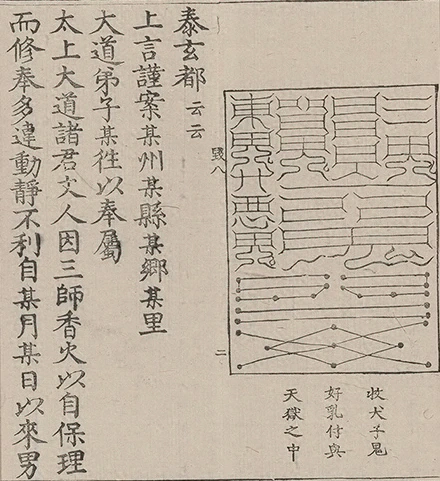 收犬子鬼
好乳付與
天獄之中
毀八
二
泰玄都云云
上言謹案某州某縣某鄉某里
大道弟子某徃以奉屬
太上大道諸君丈人因三師香火以自保理
而修奉多違動靜不利自某月某日以來男